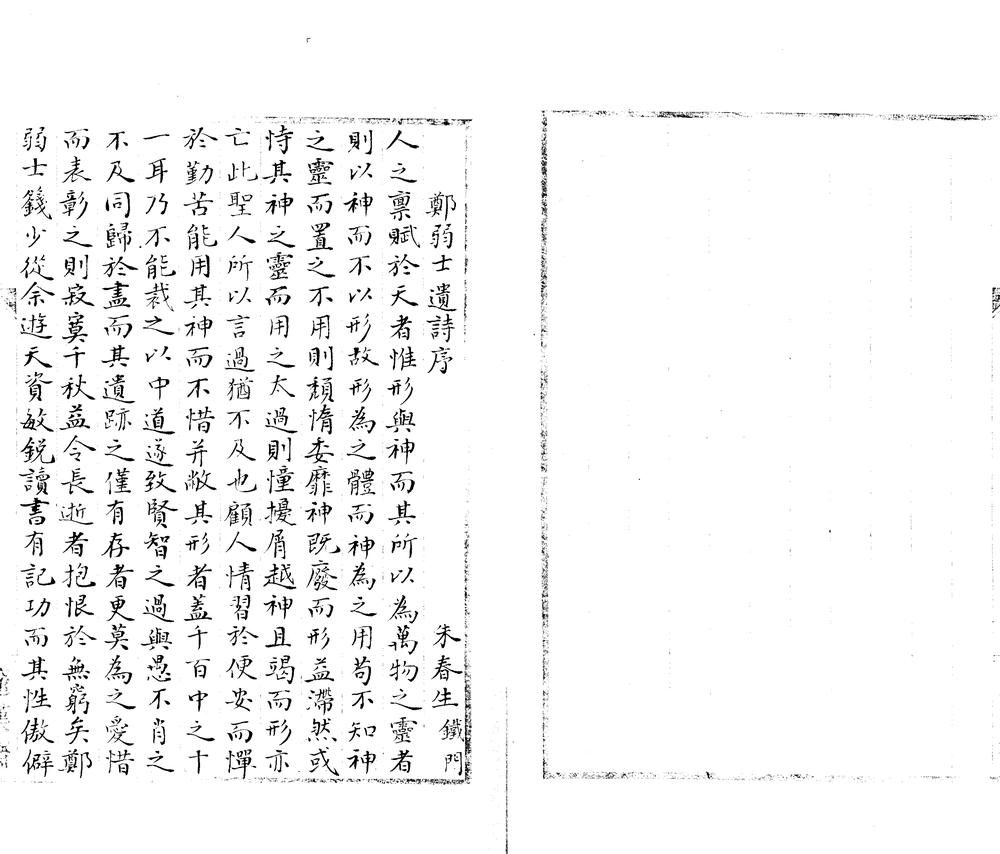 鄭弱士遺詩序　朱春生鐵門
人之禀賦於天者惟形與神而其所以為萬物之靈者
則以神而不以形故形為之體而神為之用苟不知神
之靈而置之不用則頹惰委靡神既廢而形益滯然或
恃其神之靈而用之太過則憧擾屑越神且竭而形亦
亡此聖人所以言過猶不及也顧人情習於便安而憚
於勤苦能用其神而不惜并敝其形者蓋千百中之十
一耳乃不能裁之以中道遂致賢智之過與愚不肖之
不及同歸於盡而其遺跡之僅有存者更莫為之愛惜
而表彰之則寂寞千秋益令長逝者抱恨於無窮矣鄭
弱士籛少從余遊天資敏銳讀書有記功而其性傲僻